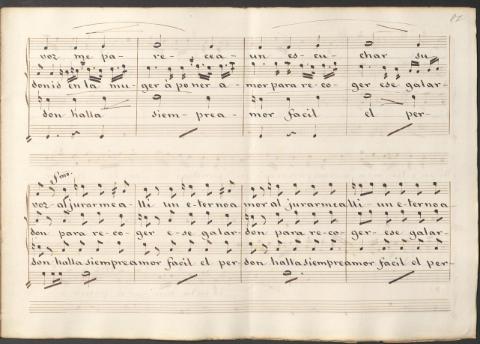 voz me pa- re- cea- un es- cu- char su-
donis en la mu- ger á poner a- mor para re-co- ger ese galar-
don halla siem- prea- mor facil el per-
Fmo.
voz al jurarmea lli un e-terno a mor al jurarmea lli un e-terno a
don para re-co- ger e-se galar- don para re-co- ger- ese galar-
don halla siempre amor fácil el per- don halla siempre amor fácil el per-